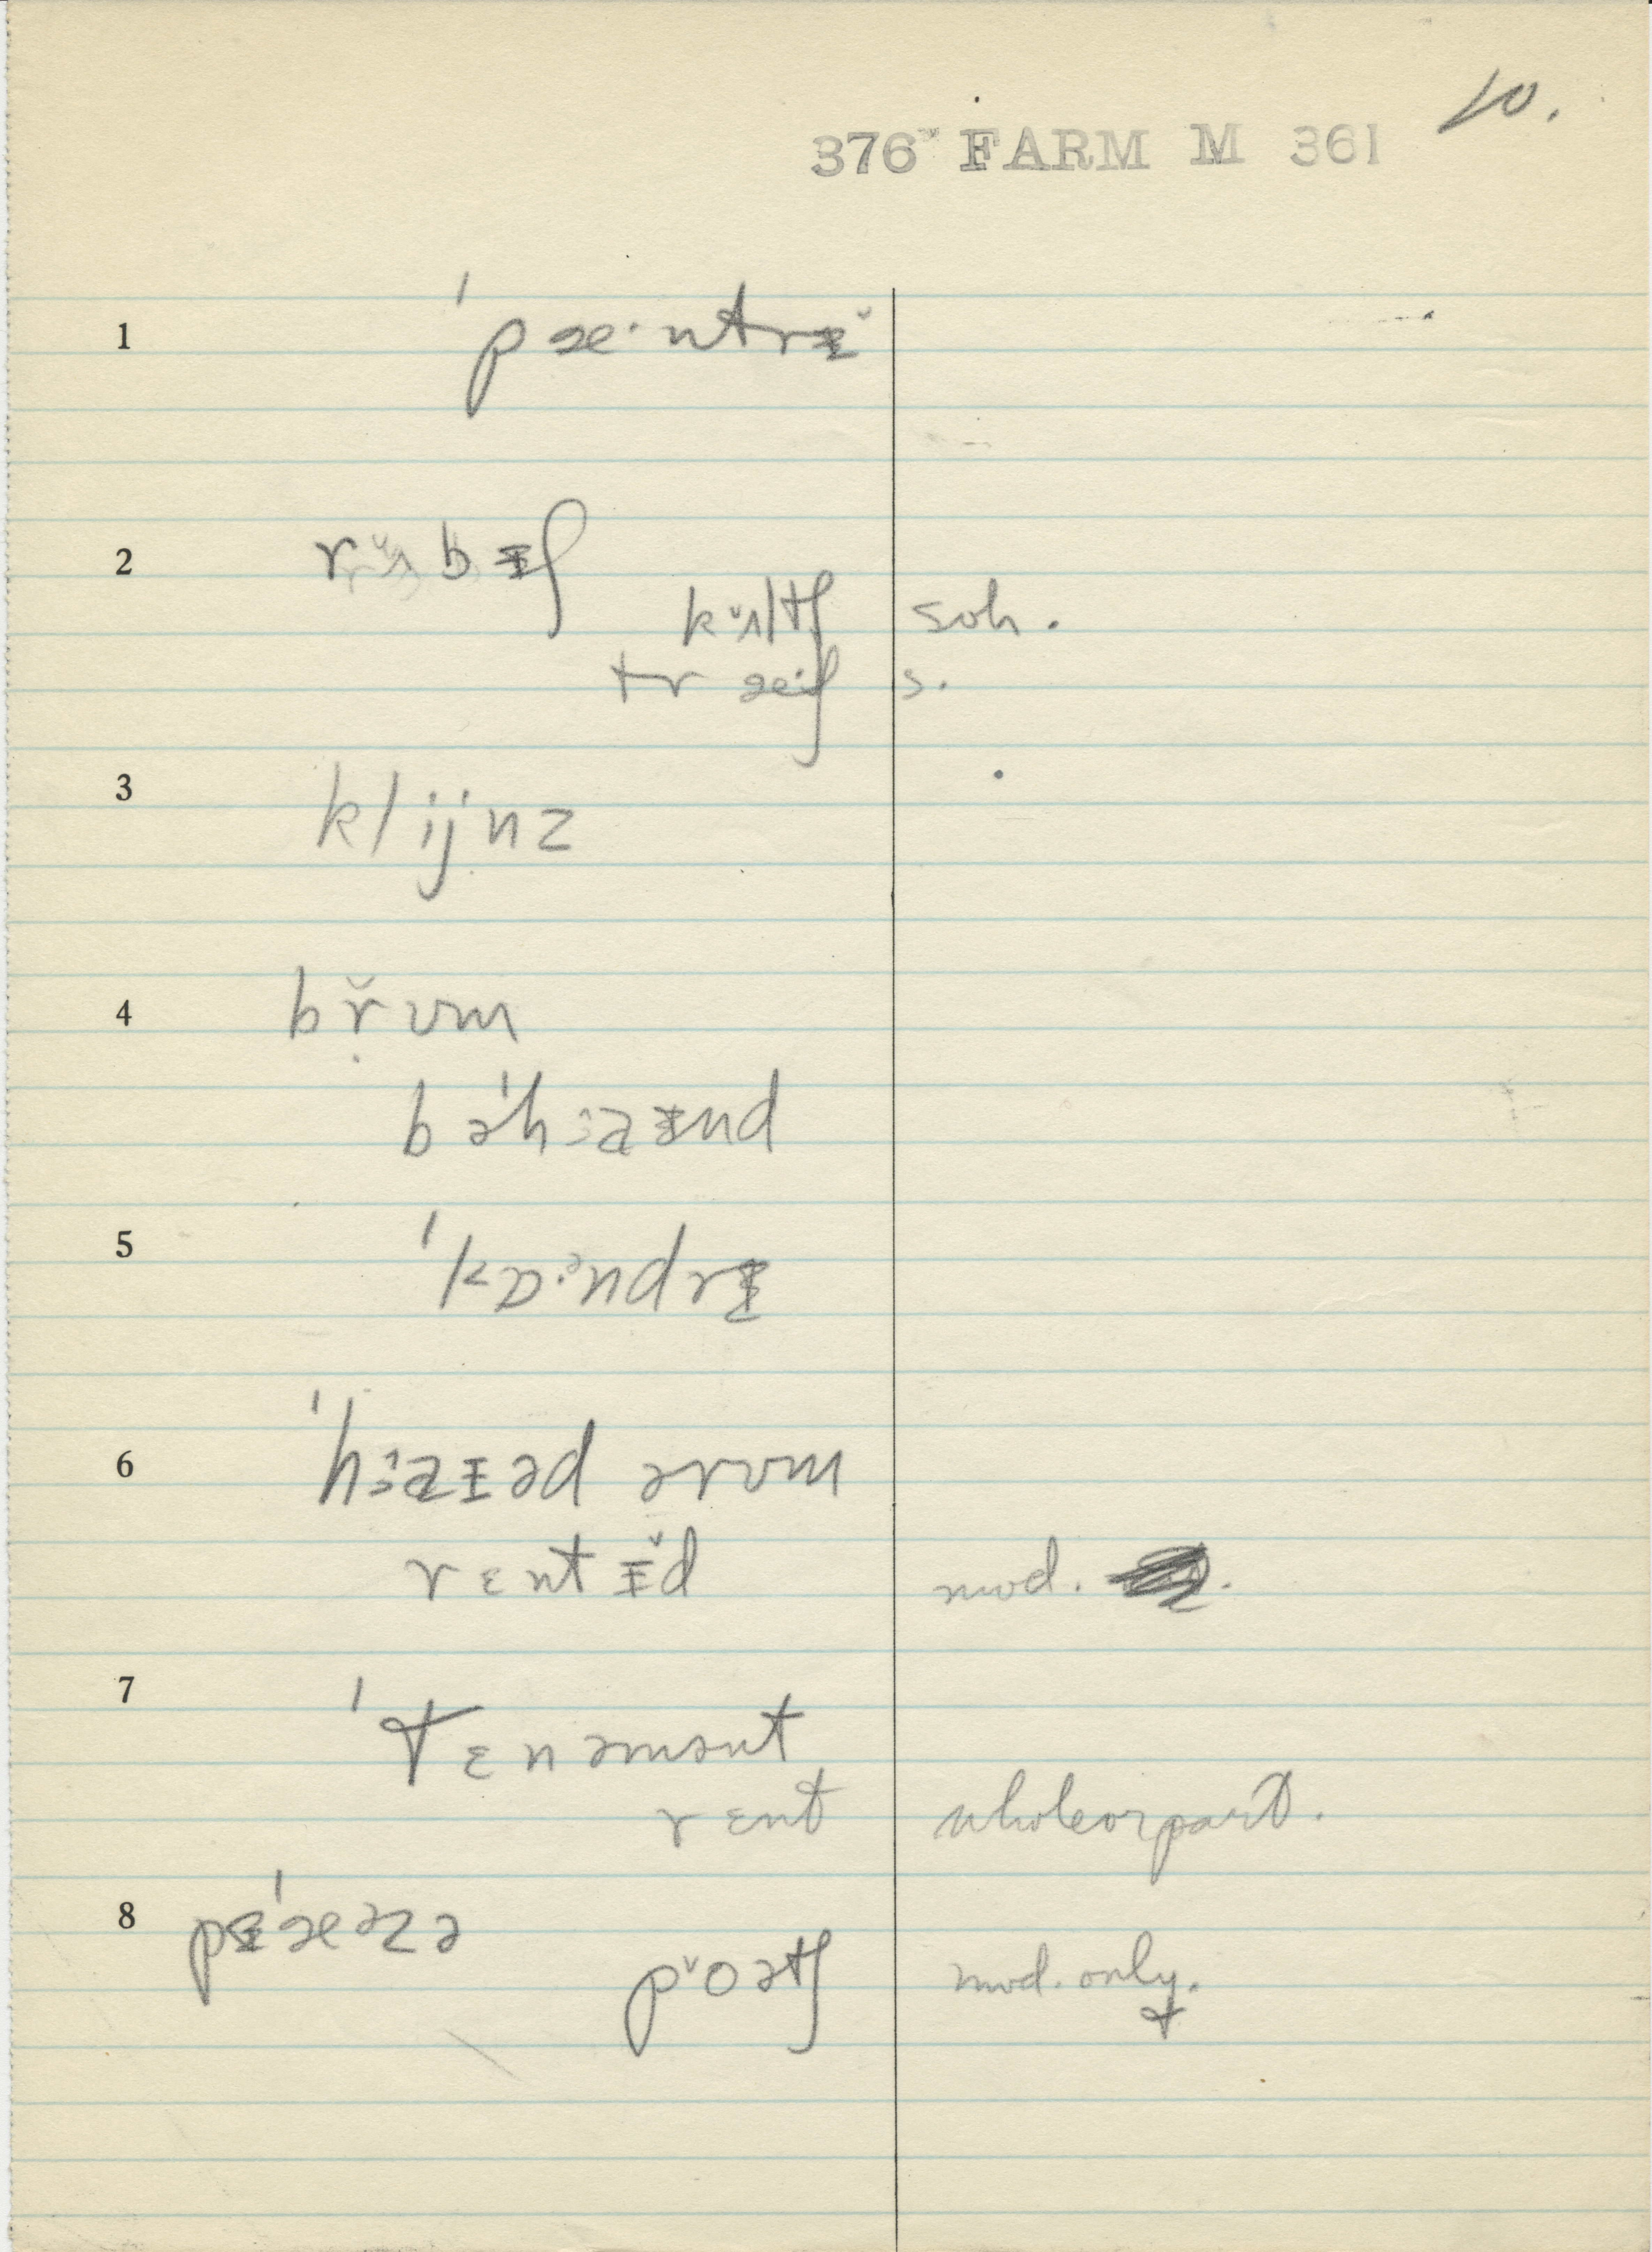 10.
376ˇ FARM M 361
1 ˈpæ·ntrɪ̵̆
2 rʌ̆bɪ̵ʃ
kʌ̆ltʃ soh.
træiʃ s.
3 klijnz
4 br̯̆ʊm
bəˈhɜaɪ̵nd
5 ˈkɒ·ᵊndrɪ̵
6 ˈhɜaɪ̵əd ərʊm
rɛntɪ̵̆d mod.
7 ˈtɛnəmənt
rɛnt whole or part.
8 pɪ̵ˈæəzə
pŏətʃ mod. only.